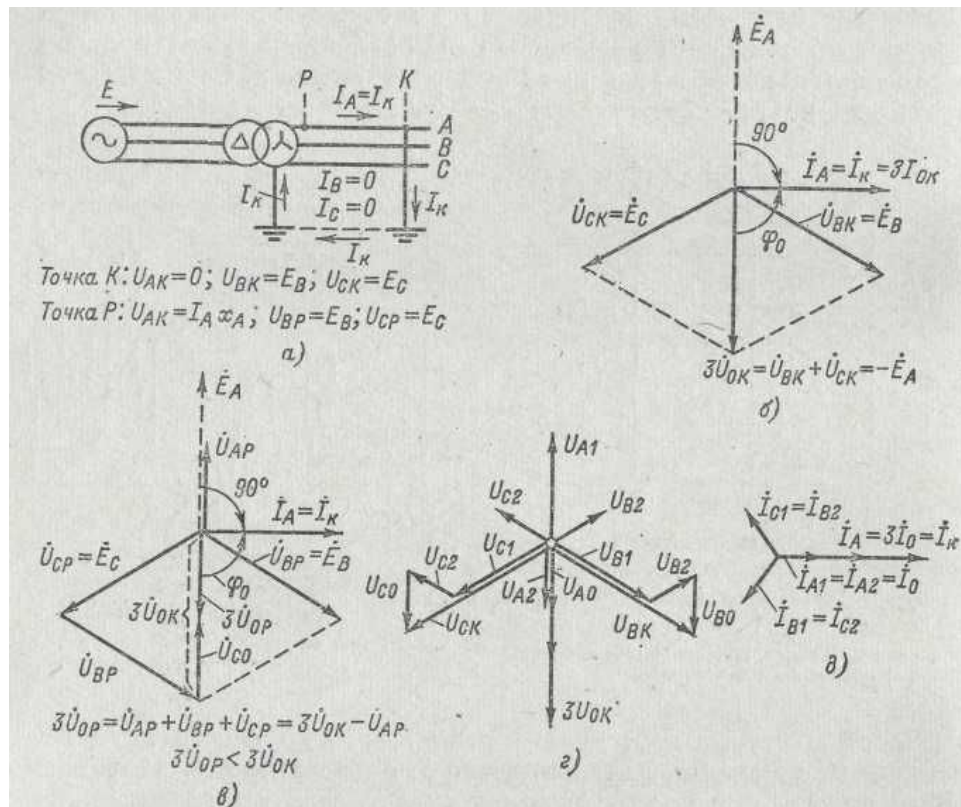 E
P
K
I_A=I_к
A
B
C
I_B=0
I_C=0
I_к
I_к
I_к
Точка К: U_AK=0; U_BK=E_B; U_CK=E_C
Точка Р: U_AK=I_A x_A; U_BP=E_B; U_CP=E_C
а)
Ė_A
90°
İ_A=İ_к=3İ_0K
U̇_CK=Ė_C
U̇_BK=Ė_B
φ_0
3U̇_0K=U̇_BK+U̇_CK=-Ė_A
б)
Ė_A
U̇_AP
90°
İ_A=İ_к
U̇_CP=Ė_C
U̇_BP=Ė_B
φ_0
3U̇_0K
3U̇_0P
U̇_C0
U̇_BP
3U̇_0P=U̇_AP+U̇_BP+U̇_CP=3U̇_0K-U̇_AP
3U̇_0P<3U̇_0K
в)
U_A1
U_C2
U_B2
U_C1
U_B1
U_C2
U_B2
U_C0
U_A2
U_A0
U_B0
U_CK
U_BK
3U_0K
г)
İ_C1=İ_B2
İ_A=3İ_0=İ_к
İ_A1=İ_A2=İ_0
İ_B1=İ_C2
д)